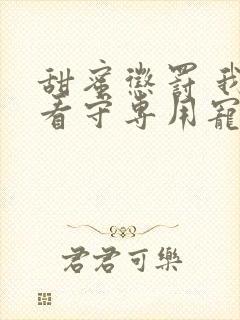 甜蜜懲罰 我
看守專用寵
君君可樂